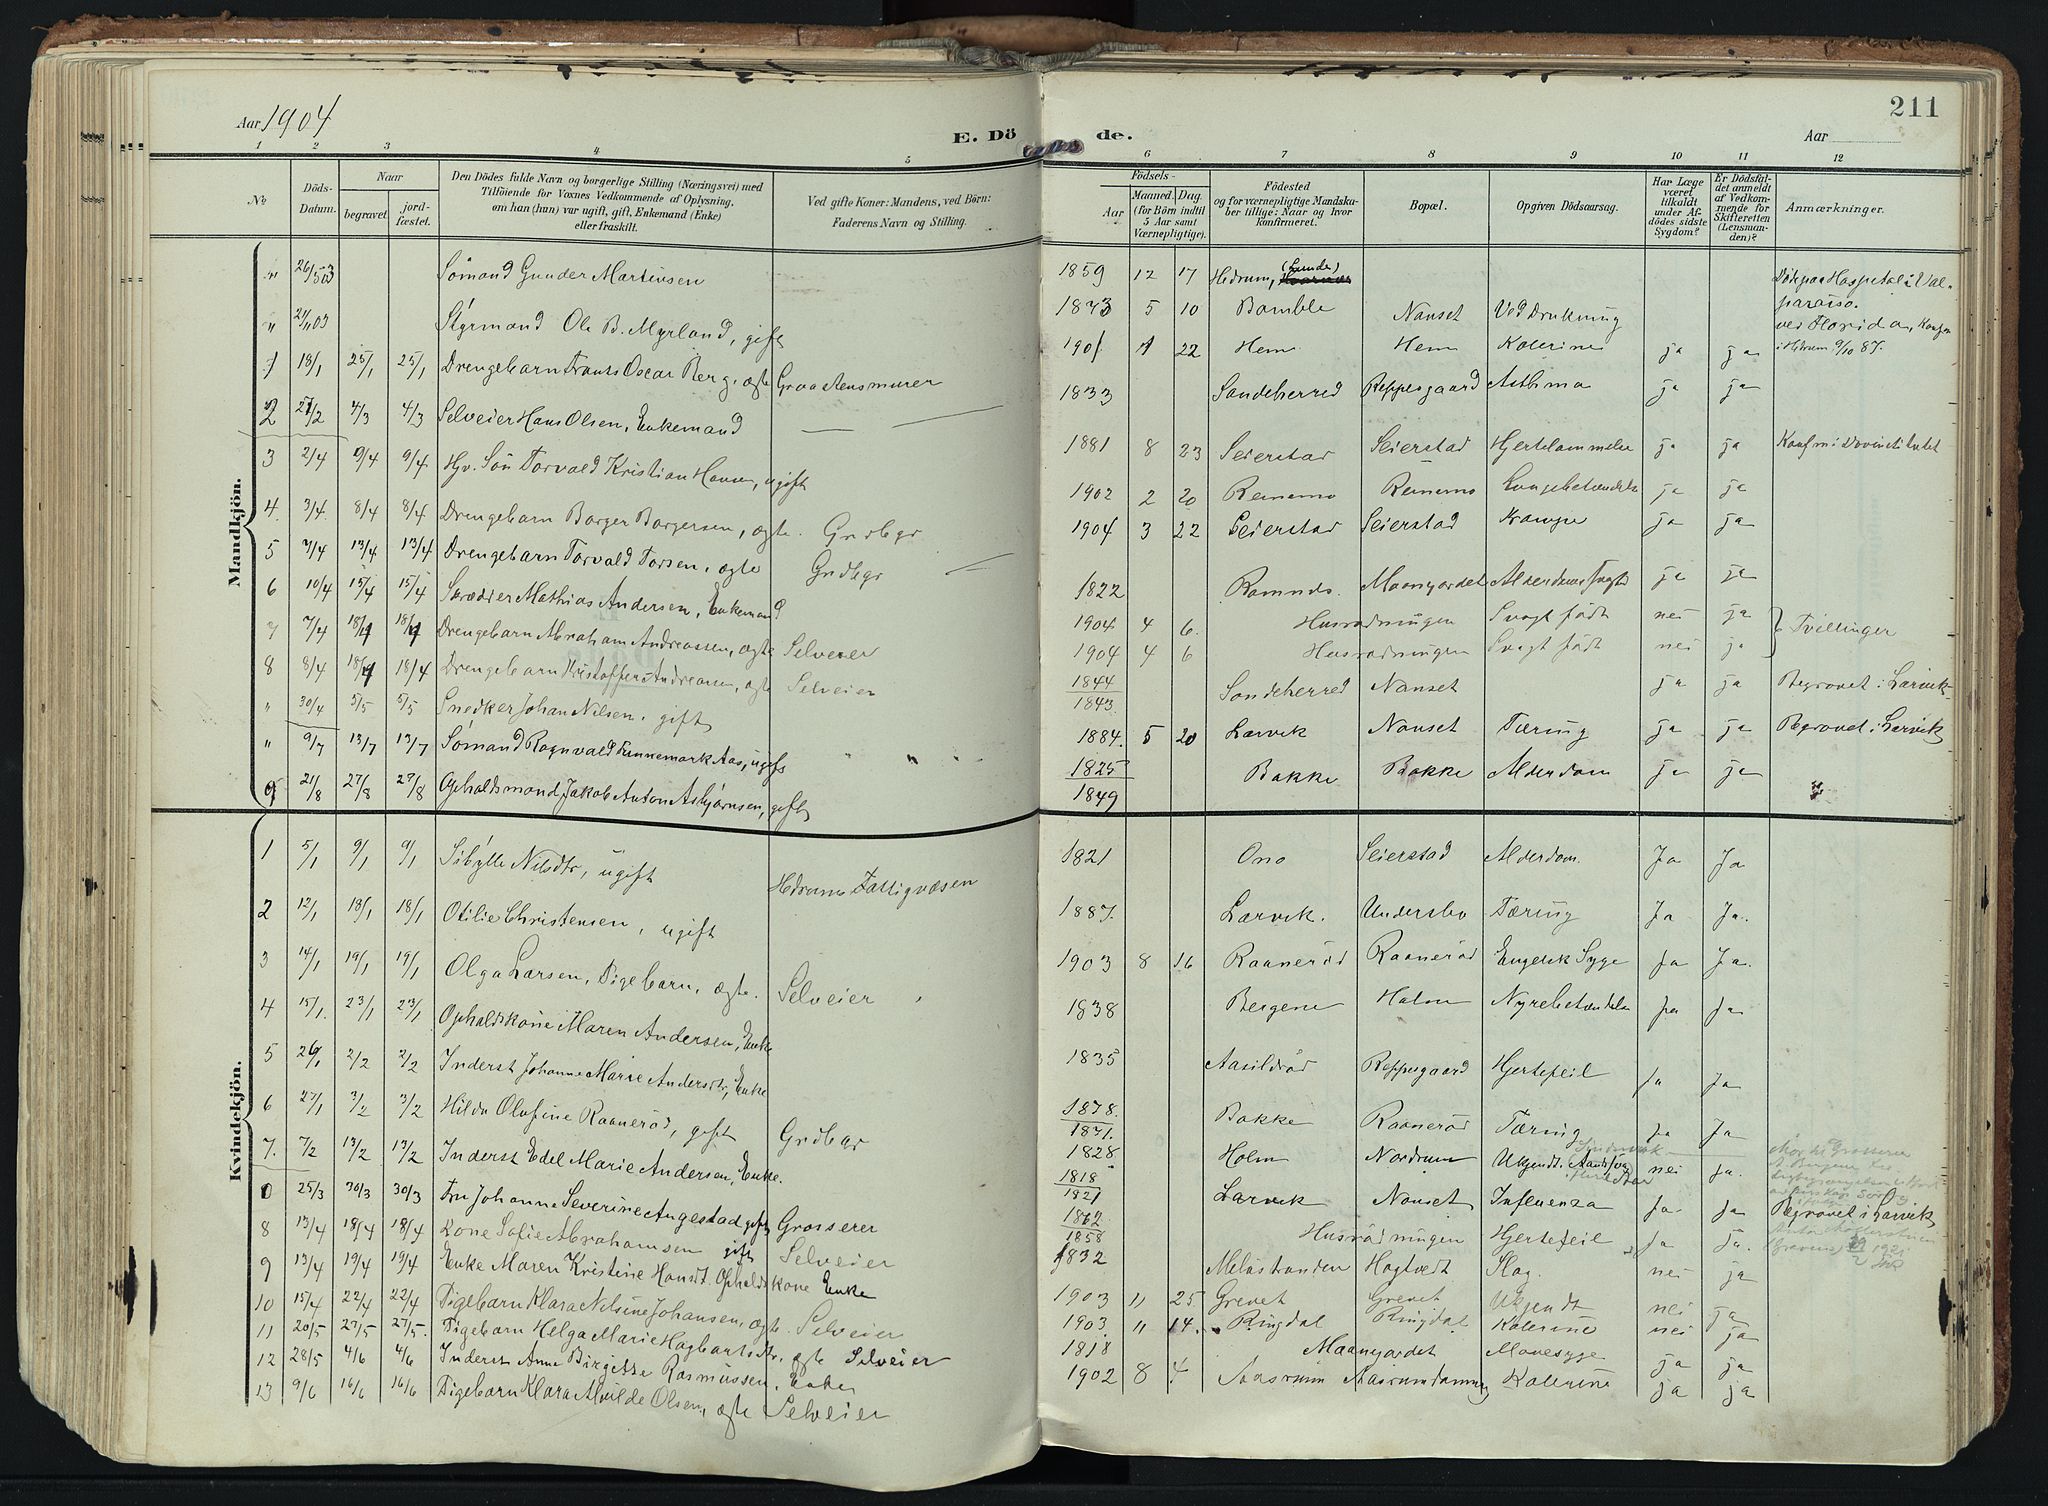 Aar 1904
E. Dö
de.
Aar
211
1 2 3 4 5 6 7 8 9 10 11 12
No
Döds-Datum.
Naar
begravet.
jord-fæstet.
Den Dödes fulde Navn og borgerlige Stilling (Næringsvei) med
Tilföiende for Voxnes Vedkommende af Oplysning,
om han (hun) var ugift, gift, Enkemand (Enke)
eller fraskilt.
Ved gifte Koner: Mandens, ved Börn:
Faderens Navn og Stilling.
Födsels-
Aar
Maaned. Dag.
(for Börn indtil
5 Aar samt
Værnepligtige).
Födested
og for værnepligtige Mandska-
ber tillige: Naar og hvor
konfirmeret.
Bopæl.
Opgiven Dödsaarsag.
Har Læge
været
tilkaldt
under Af-
dödes sidste
Sygdom?
Er Dödsfal-
det anmeldt
af Vedkom-
mende for
Skifteretten
(Lensman-
den)?
Anmærkninger.
Mandkjön.
" 26/5 03 Sömand Gunder Martinsen 1859 12 17 Hedrum, (Lunde) Död paa Hospital i Valparaiso.
" 21/11 03 Styrmand Ole B. Myrland, gift 1873 5 10 Bamble Nanset Ved Drukning ved Florida, Konf. i Hedrum 9/10 87.
1 18/1 25/1 25/1 Drengebarn Frants Oscar Berg, ægte Graastensmurer 1901 22 Hem Hem Kolerine ja ja
2 27/2 4/3 4/3 Selveier Hans Olsen, Enkemand — — 1833 Sandeherred Reppesgaard Asthma ja ja
3 2/4 9/4 9/4 Gr. Sön Torvald Kristian Hansen, ugift 1881 8 23 Seierstad Seierstad Hjertelammelse ja ja
4 3/4 8/4 8/4 Drengebarn Borger Borgersen, ægte. Grdbgr 1902 2 20 Reinemo Reinemo Lungebetændelse ja ja
5 7/4 13/4 13/4 Drengebarn Torvald Torsen, ægte Grdbgr — 1904 3 22 Seierstad Seierstad Krampe ja ja
6 10/4 15/4 15/4 Skrædder Mathias Andersen, Enkemand 1822 Ramnes. Maanejordet Alderdomssvagh ja ja
7 7/4 18/4 18/4 Drengebarn Abraham Andreassen, ægte Selveier 1904 4 6. Husrödningen Svagt født nei ja } Tvillinger
8 8/4 18/4 18/4 Drengebarn Kristoffer Andreasen, ægte Selveier 1904 4 6 Husrödningen Svagt født nei ja
" 30/4 5/5 5/5 Snedker Johan Nilsen, gift 1844/1843. Sandeherred Nanset ja ja Begravet i Larvik
" 9/7 13/7 13/7 Sömand Ragnvald Finnemark Aas, ugift " " 1884. 5 20 Larvik Nanset Tæring ja ja Begravet i Larvik
9 21/8 27/8 27/8 Opholdsmand Jakob Anton Asbjørnsen, gift 1825/1849 Bakke Bakke Alderdom ja ja "
Kvindekjön.
1 5/1 9/1 9/1 Sibylle Nilsdtr, ugift Hedrums Fattigvæsen 1821 Ono Seierstad Alderdom. Ja Ja
2 12/1 18/1 18/1 Otilie Christensen, ugift 1887. Larvik. Undersbo Tæring Ja Ja.
3 14/1 19/1 19/1 Olga Larsen, Pigebarn, ægte. Selveier 1903 8 16 Raanerød Raanerød Engelsk Syge Ja Ja.
4 15/1. 23/1 23/1 Opholdskone Maren Andersen, Enke 1838 Bergene Holm Nyrebetændelse ja Ja
5 26/1 2/2 2/2 Inderst Johanne Marie Andersdtr, Enke 1835 Aasildrød Reppesgaard Hjertefeil Ja Ja
6 27/1 3/2 3/2 Hilda Olufine Raanerød, gift Grdbgr 1878./1871. Bakke Raanerød Tæring Ja Ja
7. 7/2 13/2 13/2 Inderst Edel Marie Andersen, Enke. 1828 Holm Nordrum Ukjendt. nei ja.
0 25/3 30/3 30/3 Fru Johanne Severine Augestad gift Grosserer 1818/1821 Larvik Nanset Influenza Ja Ja Begravet i Larvik
8 13/4 18/4 18/4 Kone Sofie Abrahamsen gift Selveier 1862/1858 Husrödningen Hjertefeil Ja Ja.
9 13/4 19/4 19/4 Enke Maren Kristine Hansdt. Opholdskone Enke 1832 Melåstranden Hagtvedt Slag. nei ja
10 15/4 22/4 22/4 Pigebarn Klara Nilsine Johansen, ægte. Selveier 1903 11 25 Grevet Grevet Ukjendt nei ja
11 20/5 27/5 27/5. Pigebarn Helga Marie Hagbartsdtr, ægte Selveier 1903. 11 14. Ringdal Ringdal Kolerine nei ja
12 28/5 4/6 4/6 Inderst Anne Birgitte Rasmussen, Enke 1818 Maanejordet Mavesyge ja ja
13 9/6 16/6 16/6 Pigebarn Klara Alvilde Olsen, ægte Selveier 1902 8 4 Aasrum Aasrumdammen Kolerine ja ja